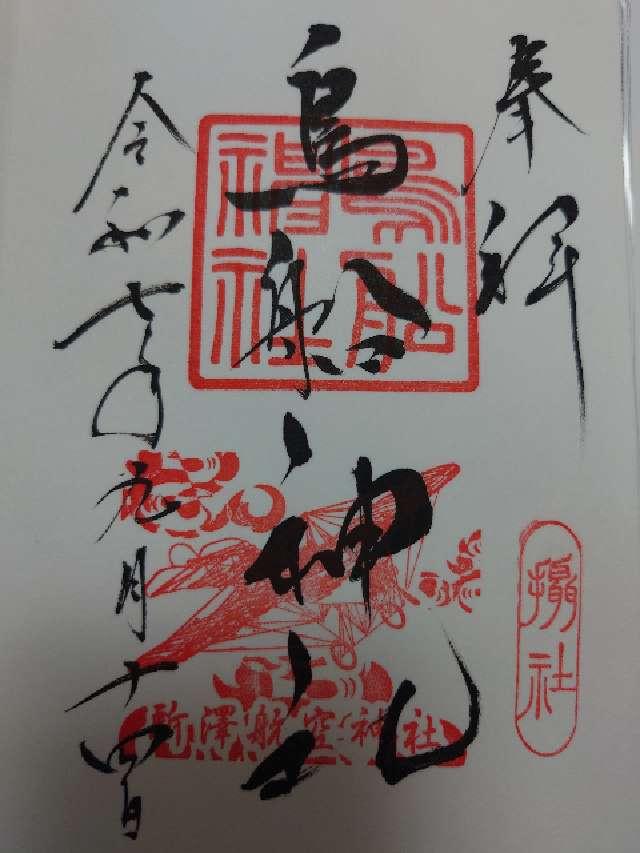 奉拝
攝社
鳥船神社
鳥船神社
所澤航空神社
令和七年元月十四日